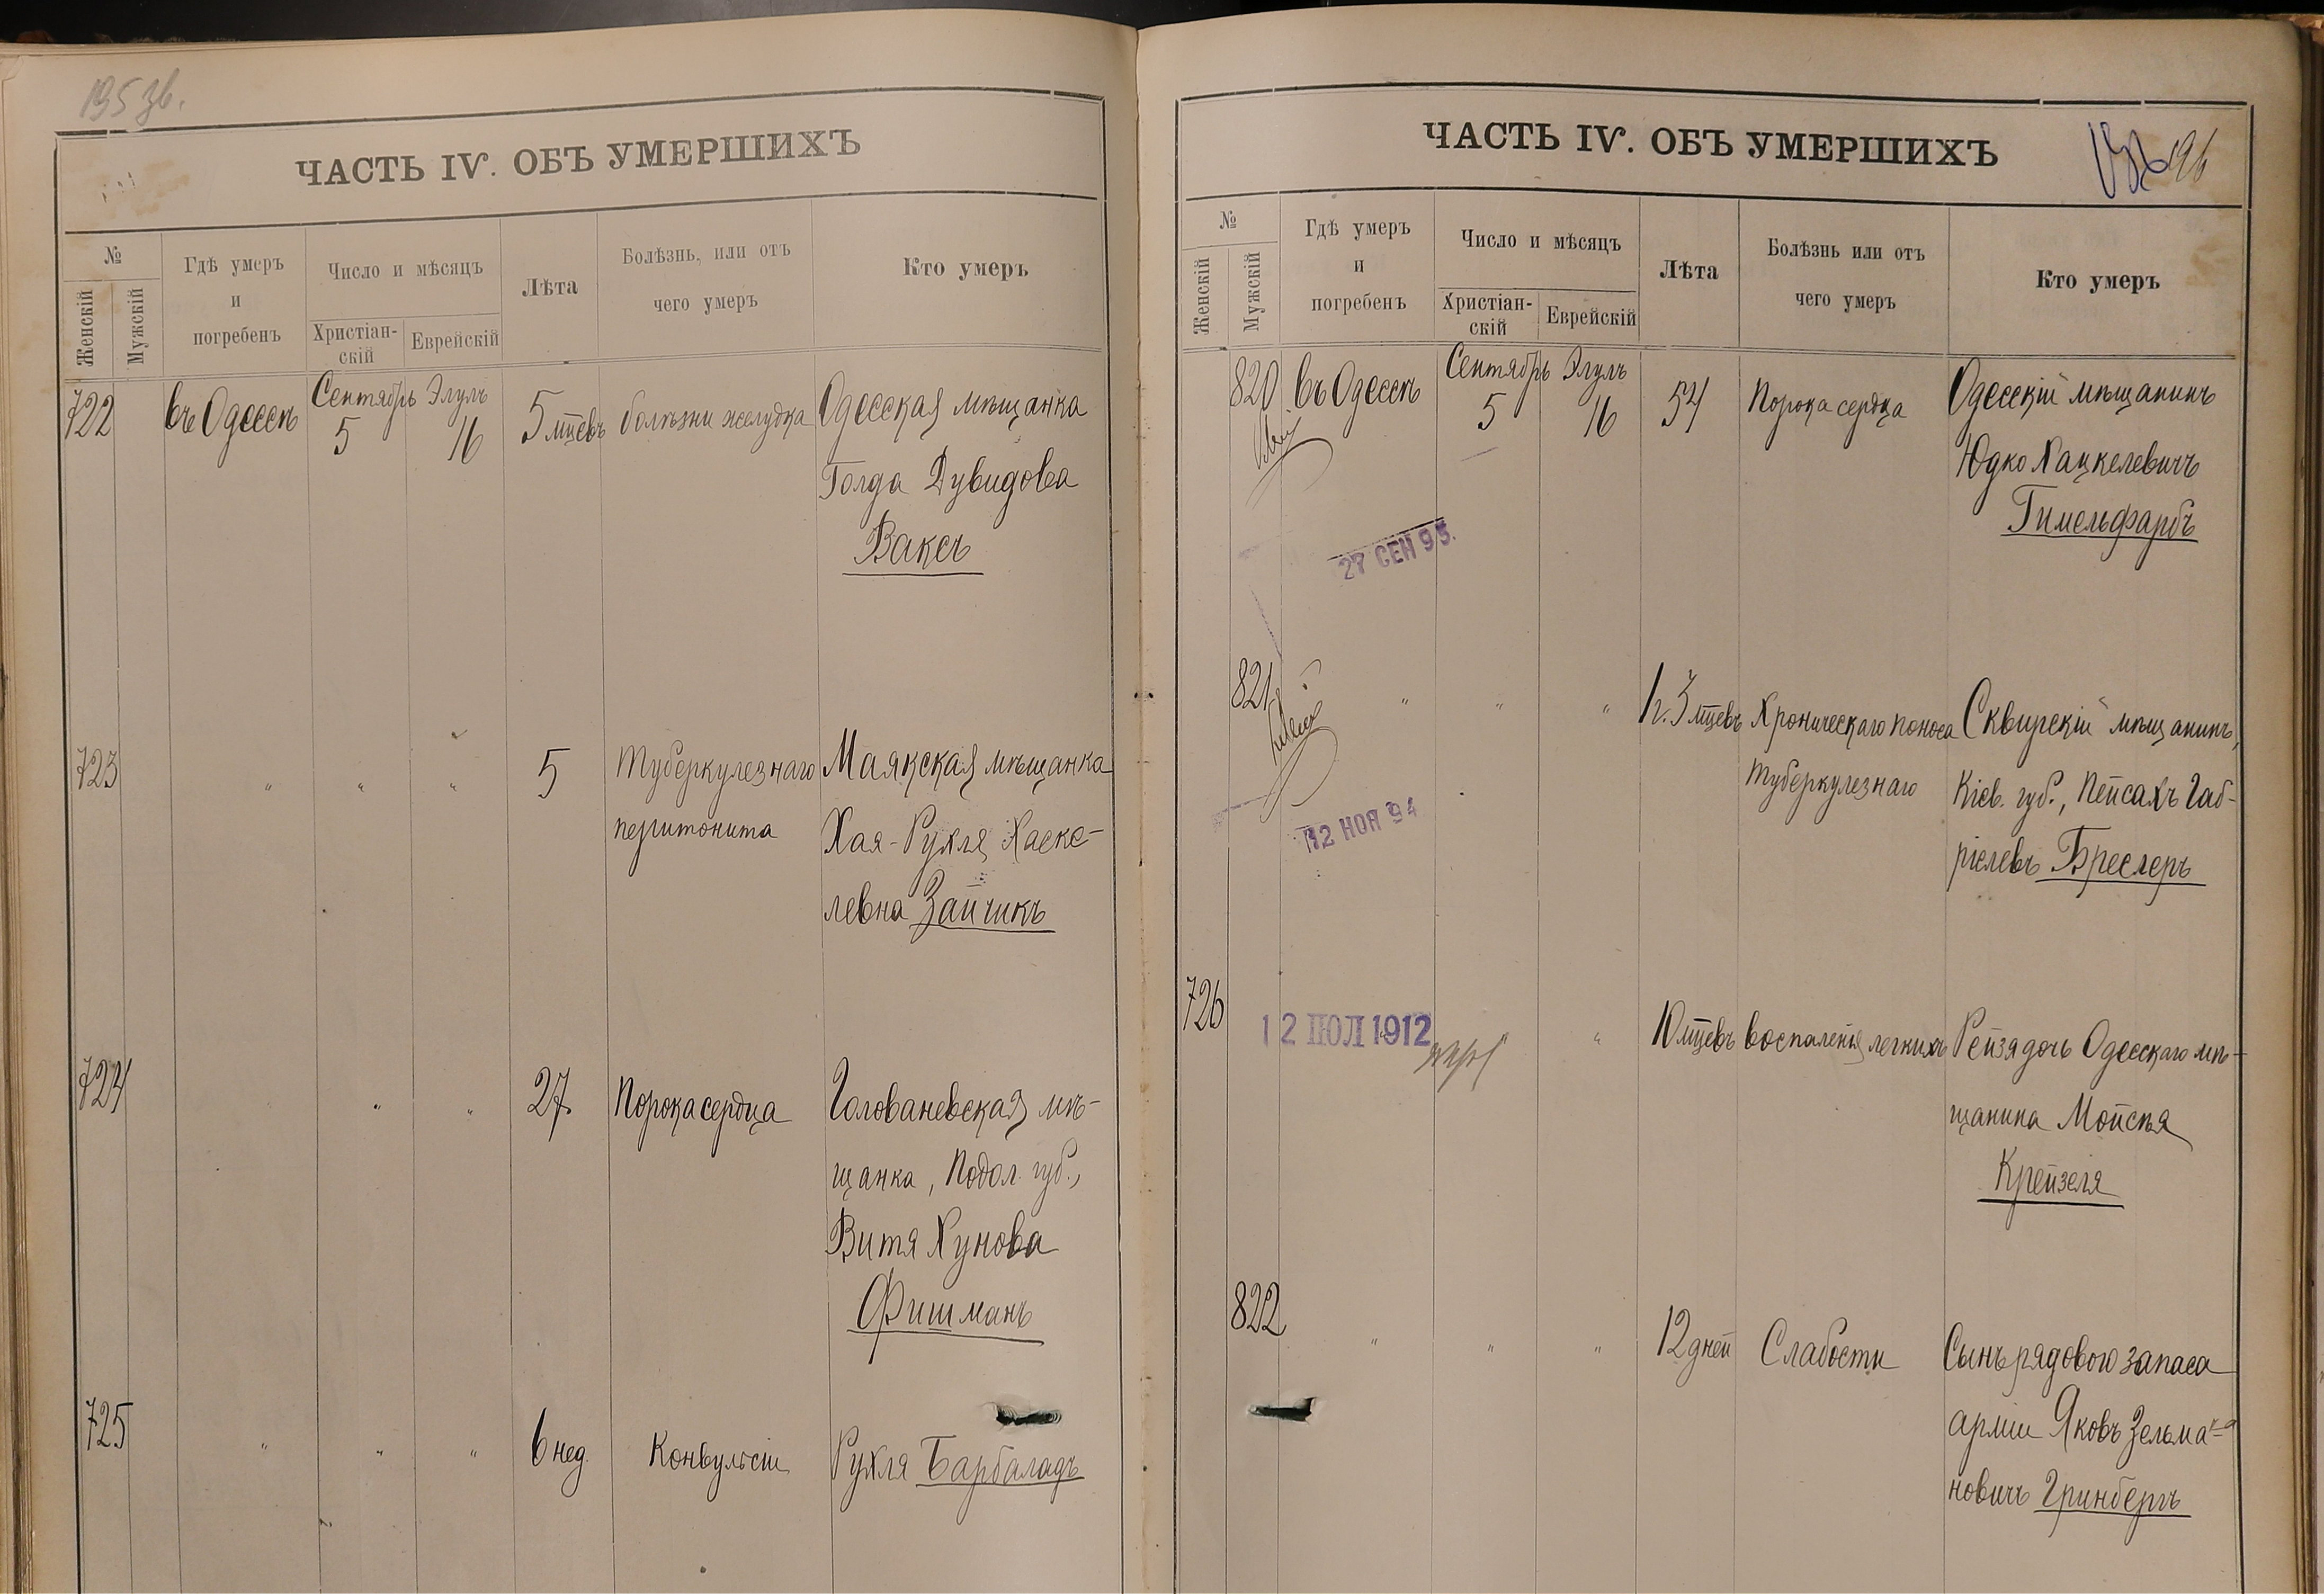 195 зв.
ЧАСТЬ IV. ОБЪ УМЕРШИХЪ
№
Женскій
Мужскій
Гдѣ умеръ
и
погребенъ
Число и мѣсяцъ
Христіан-
скій
Еврейскій
Лѣта
Болѣзнь, или отъ
чего умеръ
Кто умеръ
722 въ Одессѣ Сентябрь 5 Элулъ 16 5 мцевъ болѣзни желудка Одесская мѣщанка
Голда Дувидова
Ваксъ
723 " " " 5 Туберкулезнаго Маякская мѣщанка
перитонита Хая-Рухля Хаске-
левна Зайчикъ
724 " " 27 Порока сердца Голованевская мѣ-
щанка, Подол. губ.,
Витя Хунова
Фишманъ
725 " " " 6 нед. Конвульсіи Рухля Барбаладъ
ЧАСТЬ IV. ОБЪ УМЕРШИХЪ
196
№
Женскій
Мужскій
Гдѣ умеръ
и
погребенъ
Число и мѣсяцъ
Христіан-
скій
Еврейскій
Лѣта
Болѣзнь или отъ
чего умеръ
Кто умеръ
820 въ Одессѣ Сентябрь 5 Элулъ 16 54 Порока сердца Одесскій мѣщанинъ
Юдко Хацкелевичъ
Гимельфарбъ
27 СЕН 95.
821 " " " 1 г. 3 мцевъ Хроническаго поноса Сквирскій мѣщанинъ,
туберкулезнаго Кіев. губ., Пейсахъ Габ-
ріелевъ Бреслеръ
12 НОЯ 94
726 12 ІЮЛ 1912 " 10 мцевъ воспаленія легкихъ Рейзя дочь Одесскаго мѣ-
щанина Мойсѣя
Крейзеля
822 " " " 12 дней Слабости Сынъ рядового запаса
арміи Яковъ Зельма-
новичъ Гринбергъ